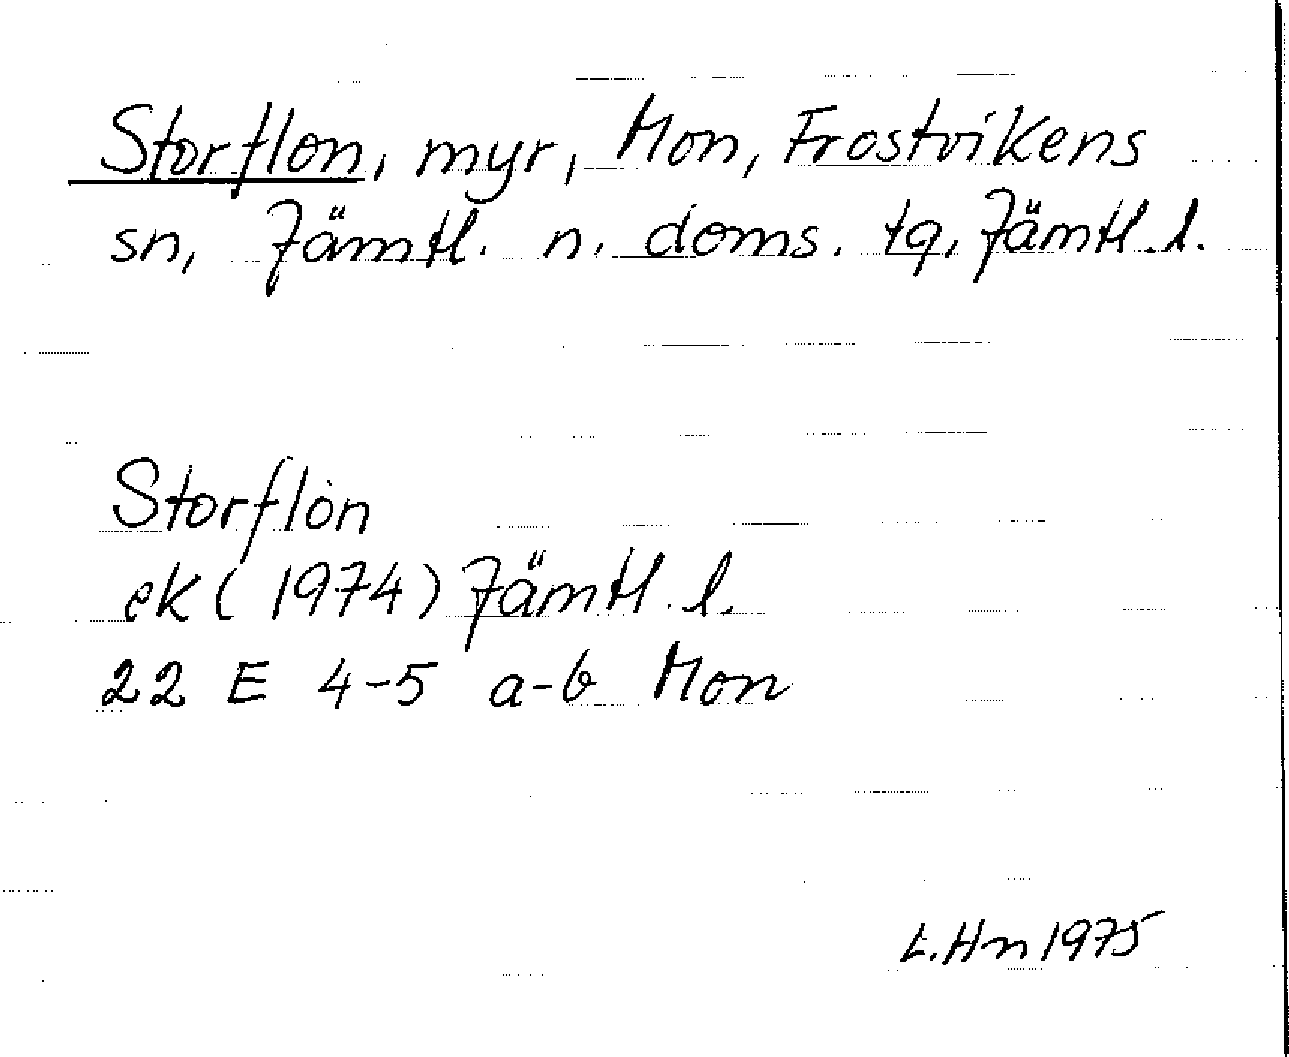 Storflon, myr, Mon, Frostvikens
sn, Jämtl. n. doms. tg, Jämtl. l.
Storflon
ek (1974) Jämtl. l.
22 E 4-5 a-b Mon
L.Hn 1975